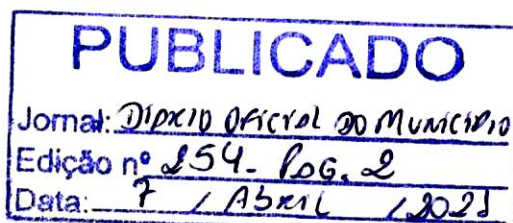 PUBLICADO
Jornal: Diário Oficial do Município
Edição nº 254. Pag. 2
Data: 7 / Abril / 2021